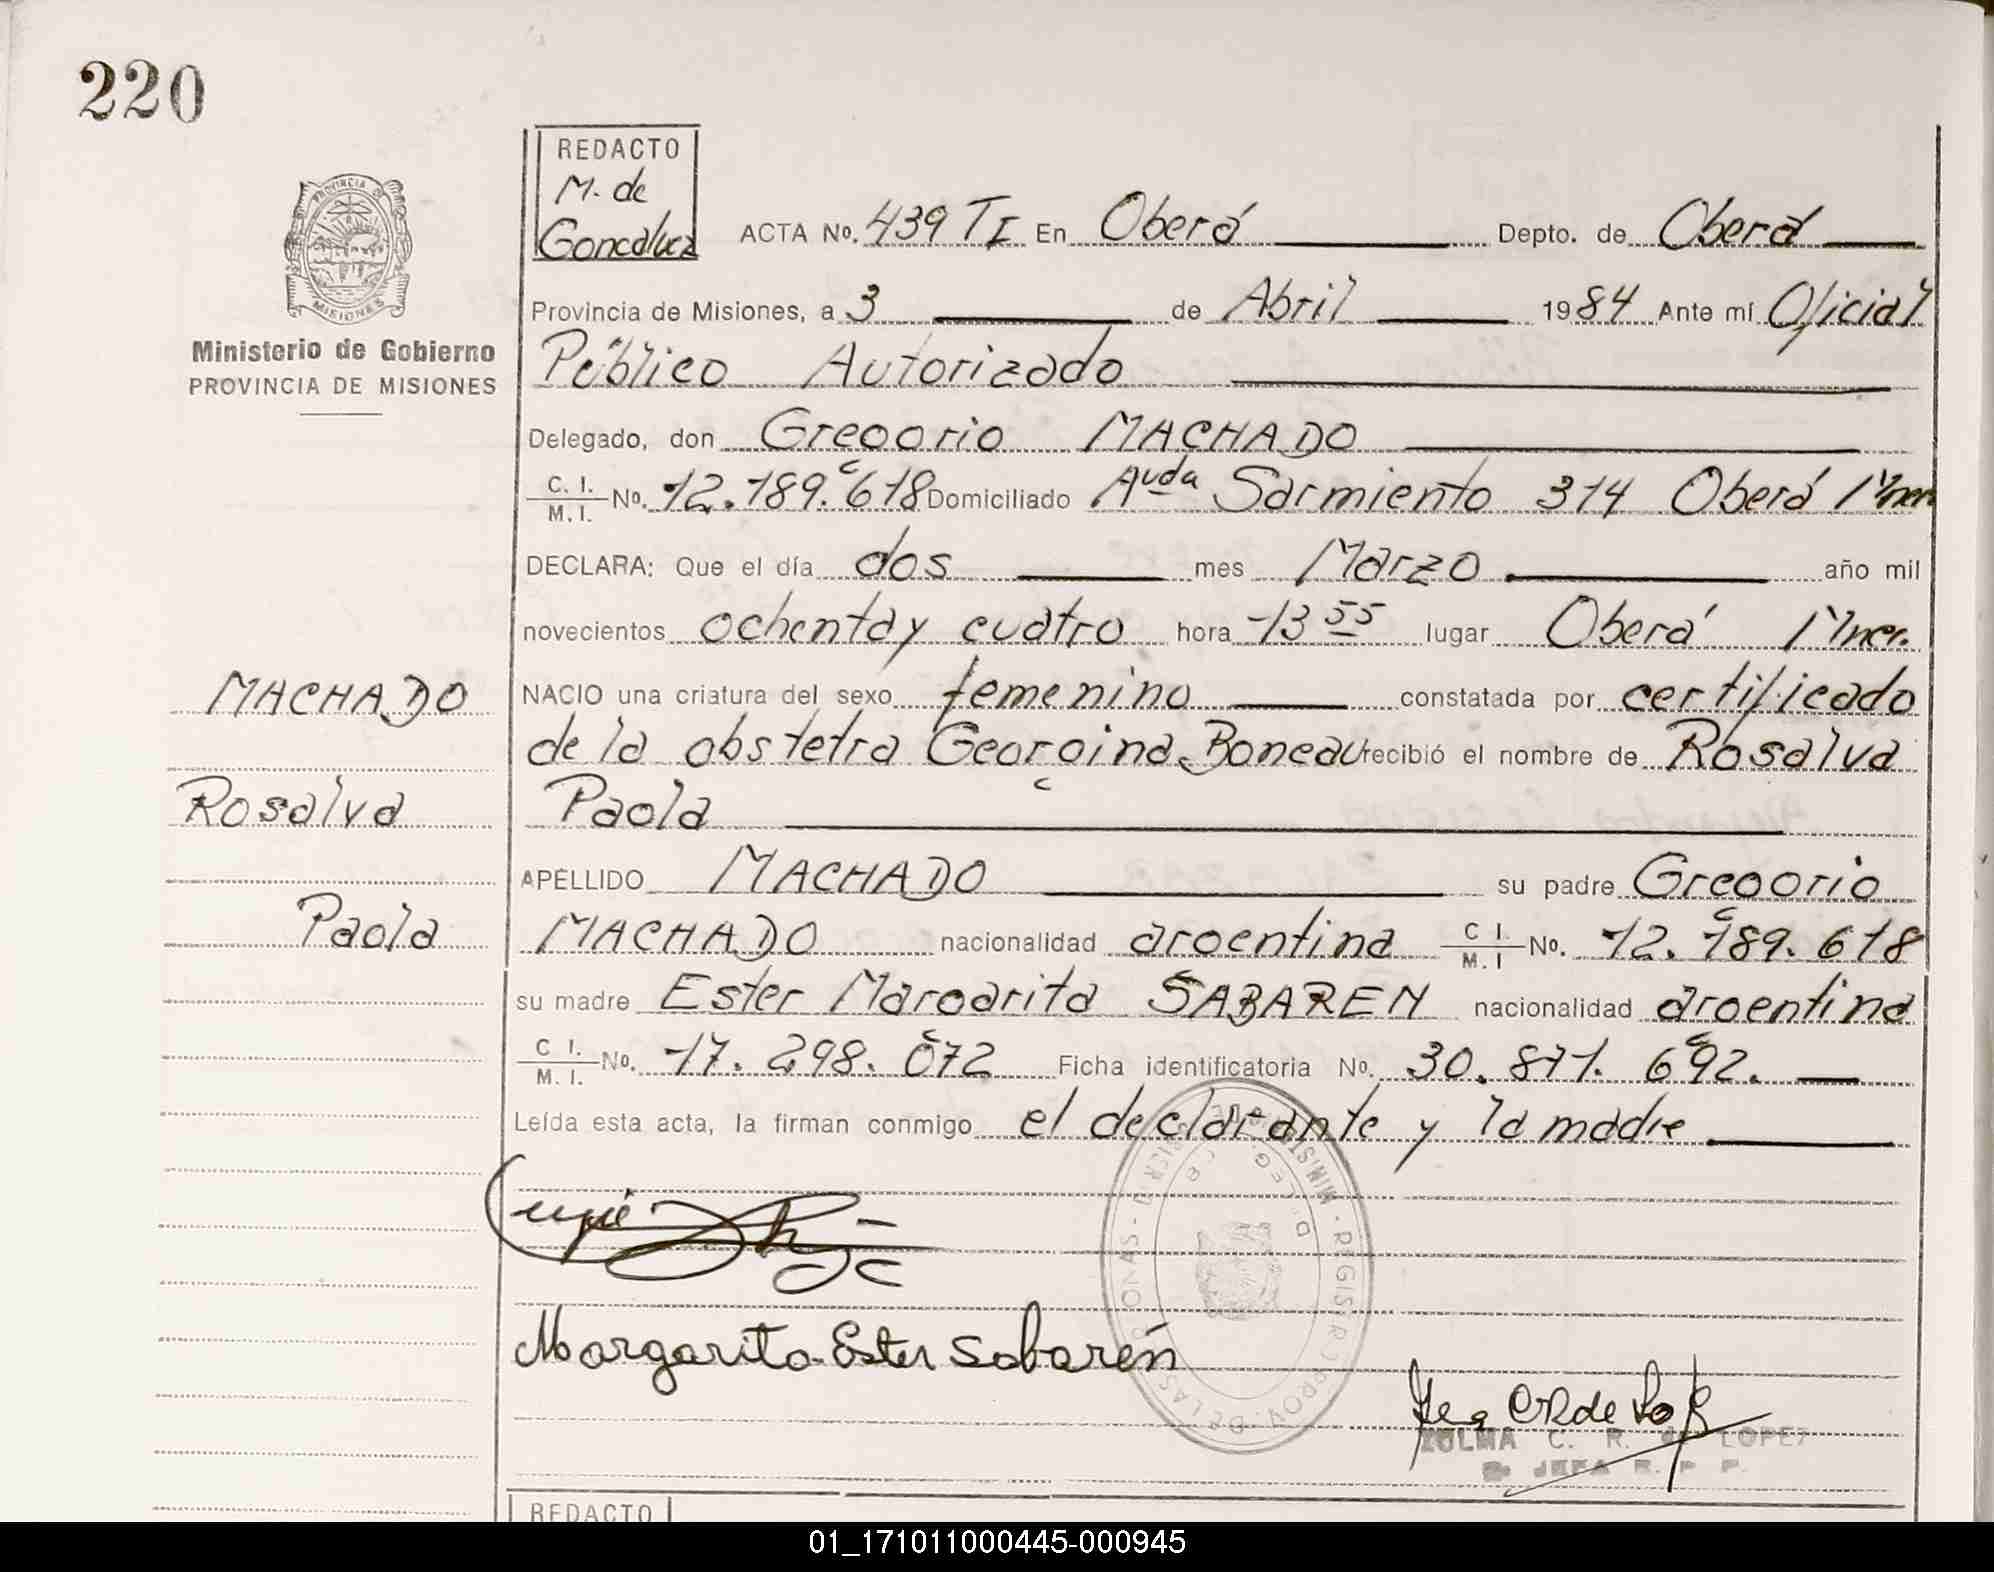 220
REDACTO
M. de
Goncalvez
PROVINCIA DE
MISIONES
Ministerio de Gobierno
PROVINCIA DE MISIONES
ACTA No. 439 TI En Oberá Depto. de Oberá
Provincia de Misiones, a 3 de Abril 1984 Ante mí Oficial
Público Autorizado
Delegado, don Gregorio MACHADO
C. I. / M. I. No. 12.189.618 Domiciliado Avda Sarmiento 314 Oberá Mnes
DECLARA: Que el día dos mes Marzo año mil
novecientos ochenta y cuatro hora 13 55 lugar Oberá Mnes.
MACHADO
NACIO una criatura del sexo femenino constatada por certificado
de la obstetra Georgina Boneau recibió el nombre de Rosalva
Rosalva
Paola
APELLIDO MACHADO su padre Gregorio
Paola
MACHADO nacionalidad argentina C I. / M. I No. 12.189.618
su madre Ester Margarita SABAREN nacionalidad argentina
C I. / M. I. No. 17.298.072 Ficha identificatoria No. 30.871.692.
Leída esta acta, la firman conmigo el declarante y la madre
Margarita Ester Sabarén
ZULMA C. R. de LOPEZ
JEFA R. P. P.
REDACTO
01_171011000445-000945